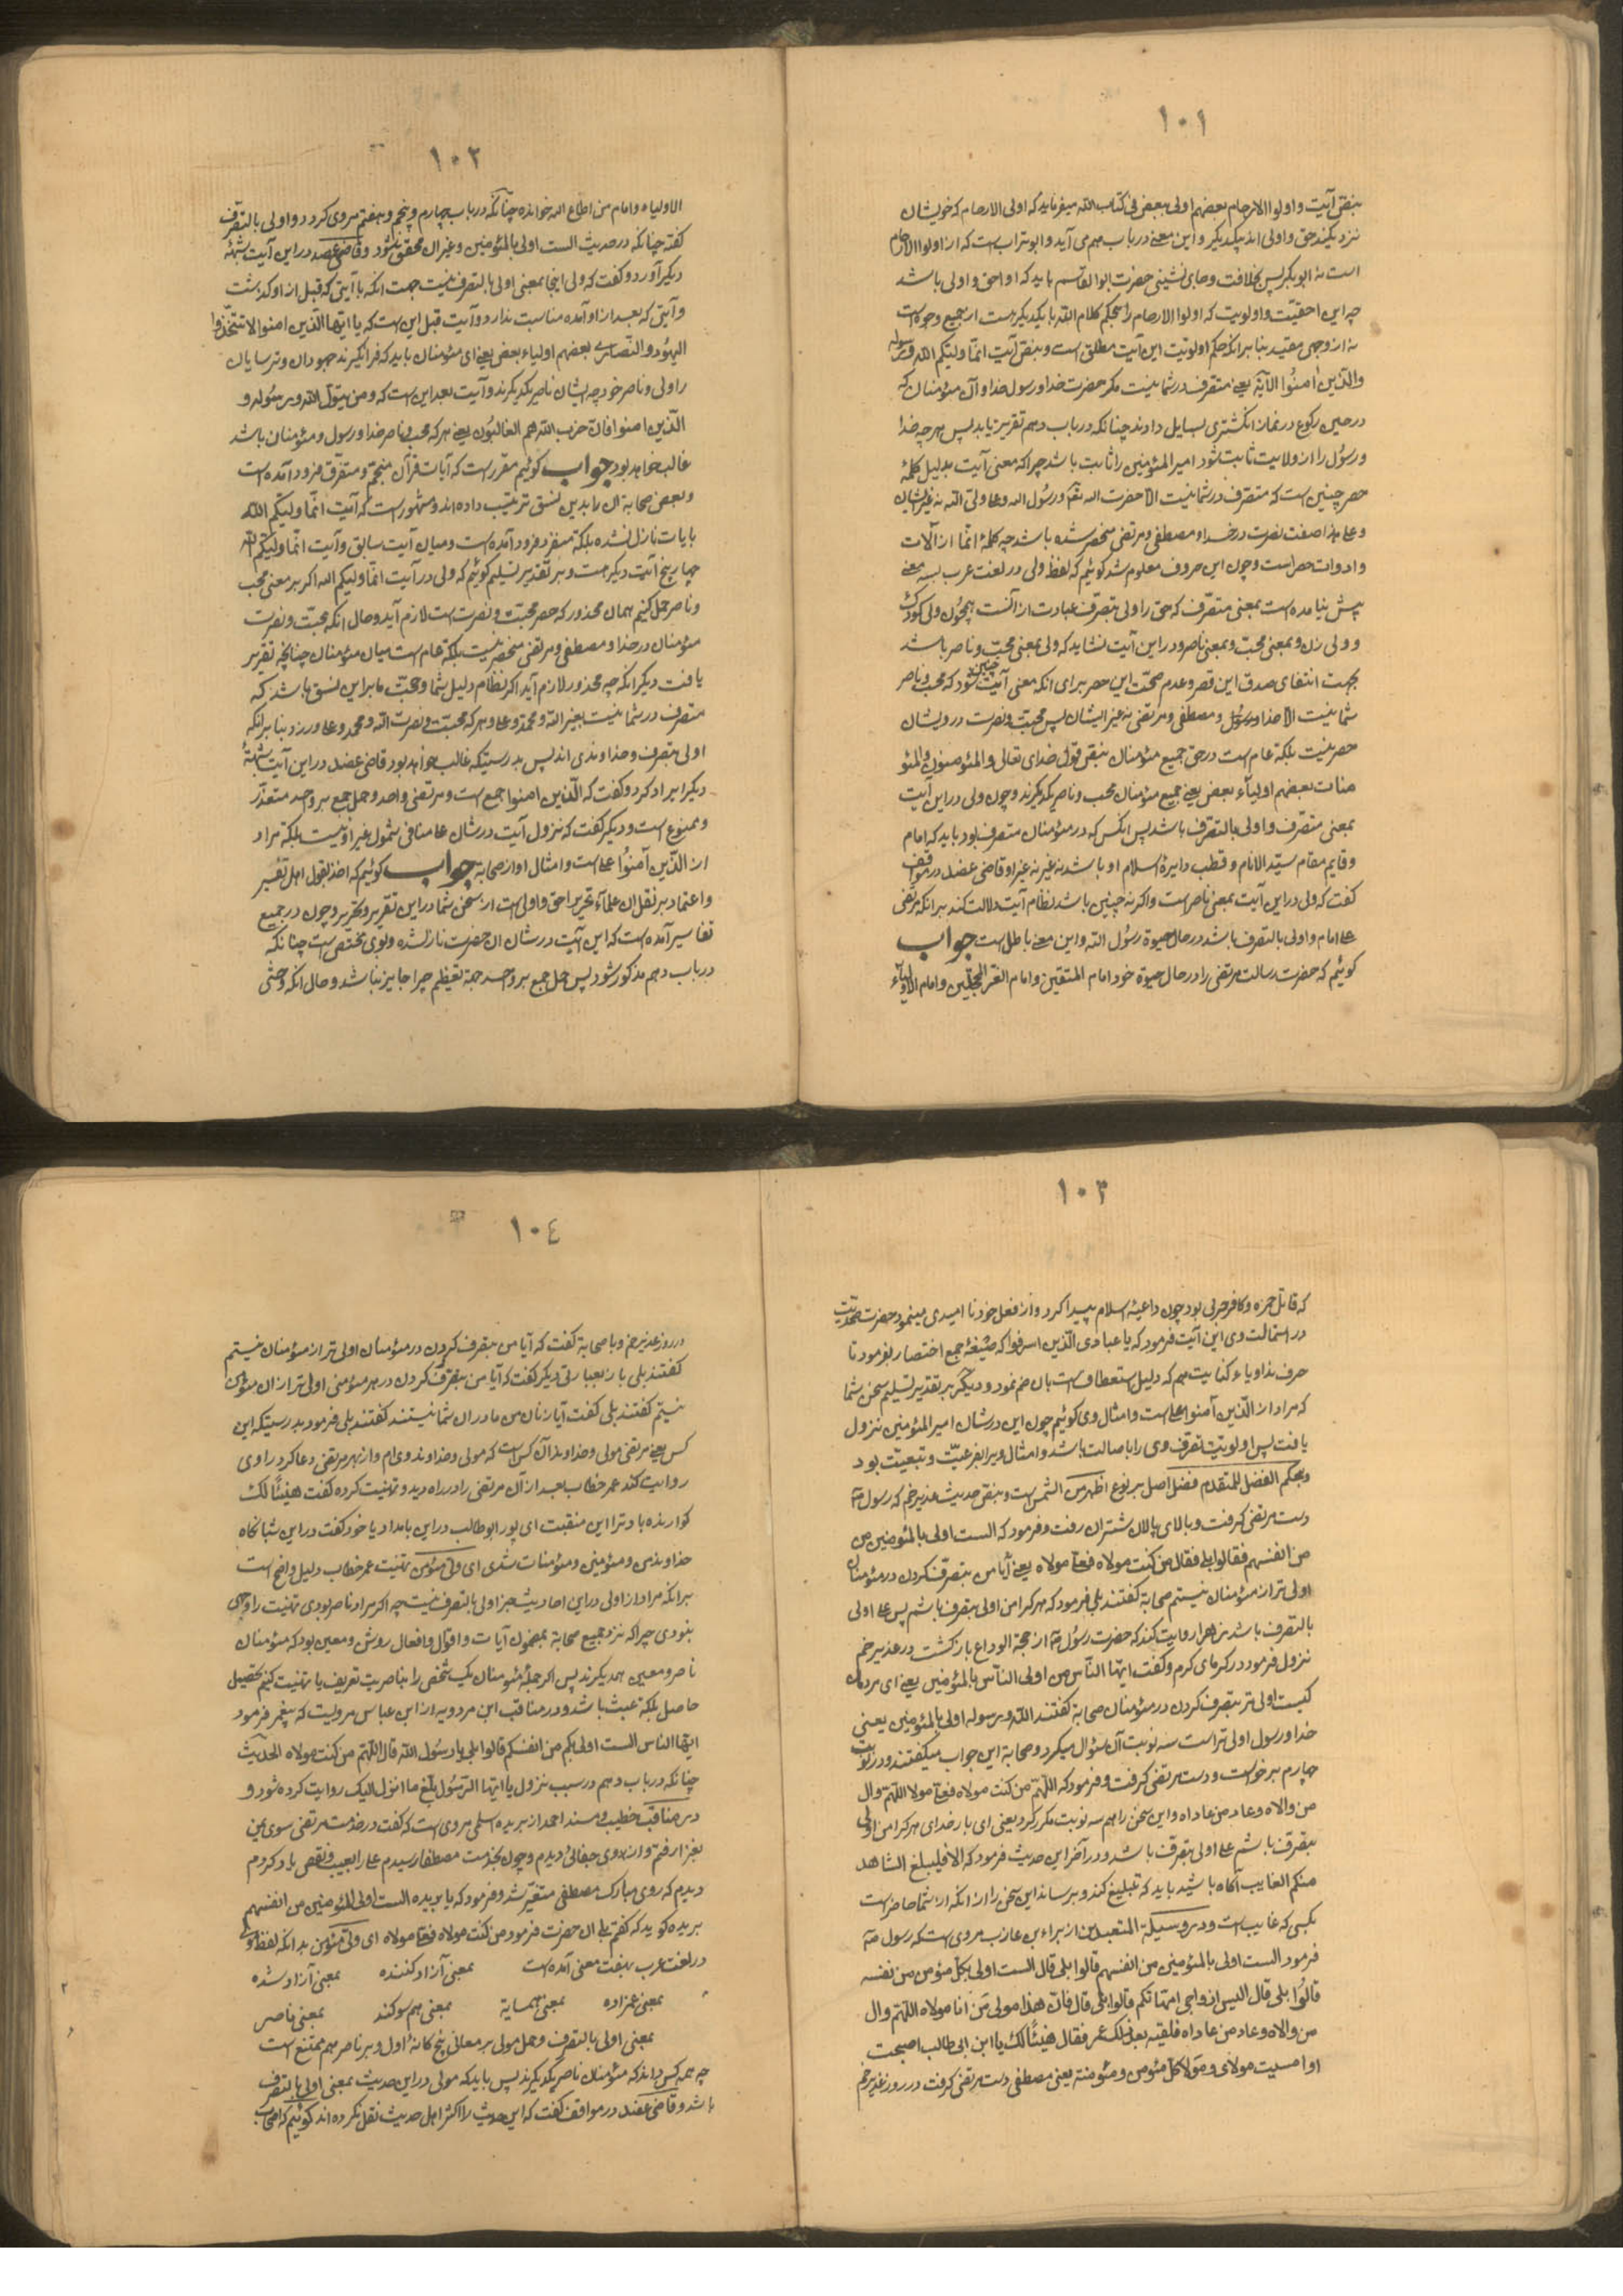 ١٠١
بنقص آیت و اولوا الارحام بعضهم اولی ببعض فی کتاب الله میفرماید که اولی الارحام که خویشان
نزدیکند حق و اولی اند بیکدیگر و این معنے در باب مهم می آید و ابو تراب ست که از اولوا الارحام
است نه ابو بکر پس خلافت و جای نشینی حضرت ابو القاسم باید که او احق و اولی باشد
چه این احقیت و اولویت که اولوا الارحام را بحکم کلام الله بایکدیگر هست از جمیع وجوه است
نه از وجهی مقید بنا بر آنکه حکم اولویت این آیت مطلق است و بنقص آیت انما ولیکم الله و رسوله
والذین امنوا الآیة یعنے متصرف در شما نیست مگر حضرت خدا و رسول خدا و آن مؤمنان که
در حین رکوع در نماز انگشتری بسایل دادند چنانکه در باب دهم تقریر یابد پس هرچه خدا
و رسول را از ولایت ثابت شود امیر المؤمنین را ثابت باشد چرا که معنی آیت بدلیل کلمهٔ
حصر چنین است که متصرف در شما نیست الا حضرت اله تعہ و رسول اله و علی ولی الله نه غیر ایشان
و علی هذا صفت نصرت در خدا و مصطفی و مرتضی منحصر شده باشد چه کلمهٔ انما از آلات
و ادوات حصر است و چون این حروف معلوم شد گوئیم که لفظ ولی در لغت عرب بسه معنے
پیش نیامده است بمعنی متصرف که حق را ولی بتصرف عبارت از آنست همچون ولی کودک
و ولی زن و بمعنی محب و بمعنی ناصر و در این آیت نشاید که ولی بمعنی محب و ناصر باشد
بجهت انتفای صدق این قصر و عدم صحت این حصر برای آنکه معنی آیت چنین شود که محب و ناصر
شما نیست الا خدا و رسول و مصطفی و مرتضی نه غیر ایشان پس محبت و نصرت در ویشان
حصر نیست بلکه عام ست در حق جمیع مؤمنان بنقص قول خدای تعالی و المؤمنون و المؤ
منات بعضهم اولیاء بعض یعنے جمیع مؤمنان محب و ناصر یکدیگرند و چون ولی در این آیت
بمعنی متصرف و اولی بالتصرف باشد پس آنکس که در مؤمنان متصرف بود باید که امام
و قایم مقام سید الانام و قطب دایرهٔ اسلام او باشد نه غیر او قاضی عضد در مواقف
گفت که ولی در این آیت بمعنی ناصر ست و اگر نه چنین باشد نظام آیت دلالت کند بر آنکه مرتضی
علی امام و اولی بالتصرف باشد در حال حیوة رسول الله و این معنے باطل ست جواب
گوئیم که حضرت رسالت مرتضی را در حال حیوة خود امام المتقین و امام الغر المحجلین و امام الاولیاء
١٠٢
الاولیاء و امام من اطاع اله خوانده چنانکه در باب چهارم و پنجم و هفتم مروی گردد و اولی بالتصرف
گفته چنانکه در حدیث الست اولی بالمؤمنین و غیر آن محقق شود و قاضی عضد در این آیت شبههٔ
دیگر آورد و گفت که ولی اینجا بمعنی اولی بالتصرف نیست جهت آنکه با آیتی که قبل از او گذشت
و آیتی که بعد از او آمده مناسبت ندارد و آیت قبل این ست که یا ایها الذین امنوا لا تتخذوا
الیهود و النصاری بعضهم اولیاء بعض یعنے ای مؤمنان باید که فرا نگیرند جهودان و ترسایان
را ولی و ناصر خود چه ایشان ناصر یکدیگرند و آیت بعد این ست که و من یتول الله و رسوله و
الذین امنوا فان حزب الله هم الغالبون یعنے هر که محب و ناصر خدا و رسول و مؤمنان باشد
غالب خواهد بود جواب گوئیم مقرر ست که آیات قرآن منجم و متفرق فرود آمده است
و بعض صحابه آن را بدین نسق ترتیب داده اند و مشهور ست که آیت انما ولیکم الله
بایات نازل نشده بلکه منفرد فرود آمده است و میان آیت سابق و آیت انما ولیکم الله
چهار پنج آیت دیگر هست و بر تقدیر تسلیم گوئیم که ولی در آیت انما ولیکم اله اگر بر معنی محب
و ناصر حمل کنیم همان محذور که حصر محبت و نصرت ست لازم آید و حال آنکه محبت و نصرت
مؤمنان در خدا و مصطفی و مرتضی منحصر نیست بلکه عام ست میان مؤمنان چنانچه تقریر
یافت دیگر آنکه چه محذور لازم آید اگر نظام دلیل شما و حجت ما بر این نسق باشد که
متصرف در شما نیست بغیر الله و محمد و علی و هر که محبت و نصرت الله و محمد و علی ورزد بنا بر آنکه
اولی بتصرف و خداوندی اند پس بدرستیکه غالب خواهد بود قاضی عضد در این آیت شبههٔ
دیگر ایراد کرد و گفت که الذین امنوا جمع است و مرتضی واحد و حمل جمع بر واحد متعذر
و ممنوع است و دیگر گفت که نزول آیت در شان علی منافی شمول غیر او نیست بلکه مراد
از الذین آمنوا علی است و امثال او از صحابه جواب گوئیم که اخذ بقول اهل تفسیر
و اعتماد بر نقل آن علماء تحریر احق و اولی ست از سخن شما در این تقریر و تحریر و چون در جمیع
تفاسیر آمده است که این آیت در شان آن حضرت نازل شده و بوی مختص ست چنانکه
در باب دهم مذکور شود پس حمل جمع بر واحد جهة تعظیم چرا جایز نباشد و حال آنکه وحشی
١٠٣
که قاتل حمزه و کافر حربی بود چون داعیهٔ اسلام پیدا کرد و از فعل خود نا امیدی مینمود حضرت صمدیت
در استمالت وی این آیت فرمود که یا عبادی الذین اسرفوا که صیغهٔ جمع اختصار نفرمود تا
حرف ندا و یاء کنایت هم که دلیل استعطاف است بان ضم نمود و دیگر بر تقدیر تسلیم سخن شما
که مراد از الذین آمنوا علی است و امثال وی گوئیم چون این در شان امیر المؤمنین نزول
یافت پس اولویت تصرف وی را باصالت باشد و امثال ویرا بفرعیت و تبعیت بود
و بحکم الفضل للمتقدم فضل اصل بر نوع اظهر من الشمس است و بنقص حدیث غدیر خم که رسول صلعم
دست مرتضی گرفت و بالای پالان شتران رفت و فرمود که الست اولی بالمؤمنین من
من انفسهم فقالوا بلی فقال من کنت مولاه فعلی مولاه یعنے آیا من بتصرف کردن در مؤمنان
اولی تر از مؤمنان نیستم صحابه گفتند بلی فرمود که هر کرا من اولی بتصرف باشم پس علی اولی
بالتصرف باشد زهرا روایت کند که حضرت رسول صلعم از حجة الوداع باز گشت در غدیر خم
نزول فرمود در گرمای گرم و گفت ایها الناس من اولی الناس بالمؤمنین یعنے ای مردمان
کیست اولی تر بتصرف کردن در مؤمنان صحابه گفتند الله و رسوله اولی بالمؤمنین یعنی
خدا و رسول اولی تر است سه نوبت آن سؤال میکرد و صحابه این جواب میگفتند و در نوبت
چهارم برخواست و دست مرتضی گرفت و فرمود که اللهم من کنت مولاه فعلی مولا اللهم وال
من والاه و عاد من عاداه و این سخن را هم سه نوبت مکرر کرد یعنی ای بار خدای هر کرا من اولی
بتصرف باشم علی اولی بتصرف باشد و در آخر این حدیث فرمود که الا فلیبلغ الشاهد
منکم الغایب آگاه باشید باید که تبلیغ کند و برساند این سخن را از آنکه از شما حاضر است
بکسی که غایب است و در وسیلة المتعبدین از براء بن عازب مروی ست که رسول صلعم
فرمود الست اولی بالمؤمنین من انفسهم قالوا بلی قال الست اولی بکل مؤمن من نفسه
قالوا بلی قال الیس ازواجی امهاتکم قالوا بلی قال فان هذا مولی من انا مولاه اللهم وال
من والاه و عاد من عاداه فلقیه بعد ذلک عمر فقال هنیئا لک یا ابن ابی طالب اصبحت
او امسیت مولای و مولا کل مؤمن و مؤمنة یعنی مصطفی دست مرتضی گرفت در روز غدیر خم
١٠٤
در روز غدیر خم و با صحابه گفت که آیا من بتصرف کردن در مؤمنان اولی تر از مؤمنان نیستم
گفتند بلی باز بعبارتی دیگر گفت که آیا من بتصرف کردن در هر مؤمنی اولی تر از آن مؤمن
نیستم گفتند بلی گفت آیا زنان من مادران شما نیستند گفتند بلی فرمود بدرستیکه این
کس یعنے مرتضی مولی و خداوند آن کس است که مولی و خداوند وی ام و از بهر مرتضی دعا کرد راوی
روایت کند عمر خطاب بعد از آن مرتضی را در راه دید و تهنیت کرده گفت هنیئا لک
گوارنده باد ترا این منقبت ای پور ابو طالب در این بامداد یا خود گفت در این شبانگاه
خداوند من و مؤمنین و مؤمنات شدی ای ولی مؤمن تهنیت عمر خطاب دلیل واضح است
بر آنکه مراد از اولی در این احادیث جز اولی بالتصرف نیست چه اگر مراد ناصر بودی تهنیت را وجهی
نبودی چرا که نزد جمیع صحابه بمضمون آیات و اقوال و افعال روشن و معین بود که مؤمنان
ناصر و معین همدیگرند پس اگر جملهٔ مؤمنان یک شخص را بناصریت تعریف یا تهنیت کنیم تحصیل
حاصل بلکه عبث باشد و در مناقب ابن مردویه از ابن عباس مرویت که پیغمبر فرمود
ایها الناس الست اولی بکم من انفسکم قالوا بلی یا رسول الله قال اللهم من کنت مولاه الحدیث
چنانکه در باب دهم در سبب نزول یا ایها الرسول بلغ ما انزل الیک روایت کرده شود و
در مناقب خطیب و مسند احمد از بریده اسلمی مروی ست که گفت در خدمت مرتضی سوی یمن
بغزا رفتم و از وی جفائی دیدم و چون بخدمت مصطفا رسیدم علی را بعیب و نقص یاد کردم
دیدم که روی مبارک مصطفی متغیر شد و فرمود که یا بریده الست اولی المؤمنین من انفسهم
بریده گوید که گفتم بلی آن حضرت فرمود من کنت مولاه فعلی مولاه ای ولی مؤمن بدانکه لفظ مولی
در لغت عرب بهفت معنی آمده است بمعنی آزاد کننده بمعنی آزاد شده
بمعنی عمزاده بمعنی همسایة بمعنی هم سوگند بمعنی ناصر
بمعنی اولی بالتصرف و حمل مولی بر معانی پنج کانهٔ اول و بر ناصر هم ممتنع است
چه همه کس داند که مؤمنان ناصر یکدیگرند پس باید که مولی در این حدیث بمعنی اولی بالتصرف
باشد و قاضی عضد در مواقف گفت که این حدیث را اکثر اهل حدیث نقل نکرده اند گوئیم که اصحاب